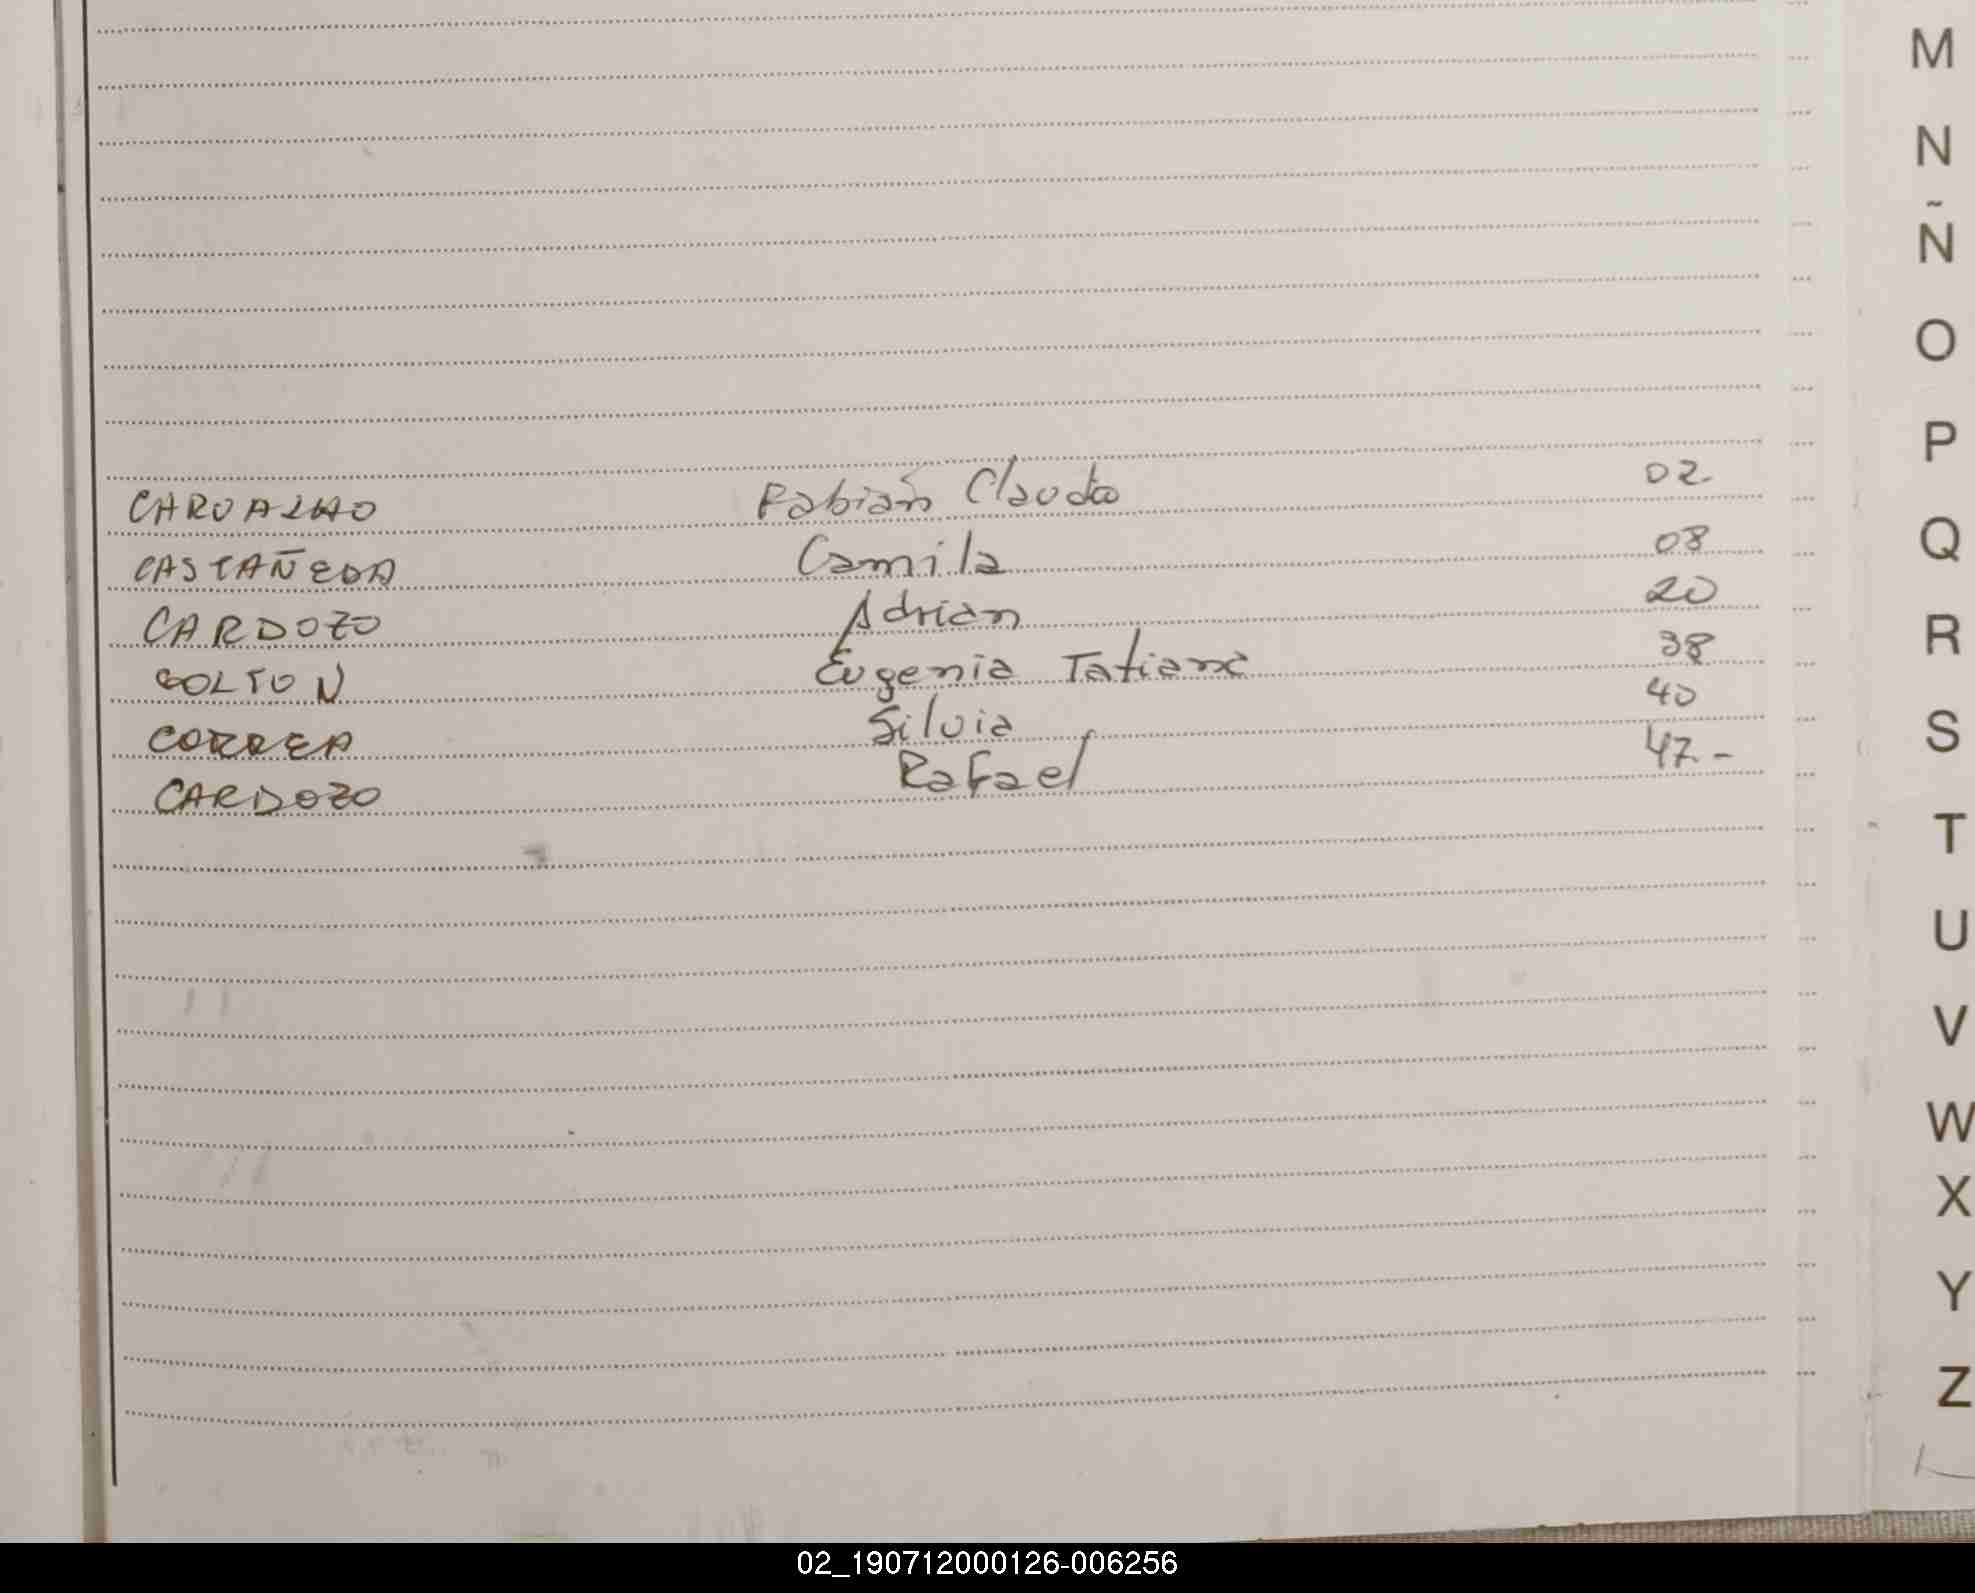 CARVALHO Fabián Claudio 02.
CASTAÑEDA Camila 08
CARDOZO Adrian 20
COLTON Eugenia Tatiana 38
CORREA Silvia 40
CARDOZO Rafael 47.-
M
N
Ñ
O
P
Q
R
S
T
U
V
W
X
Y
Z
02_190712000126-006256